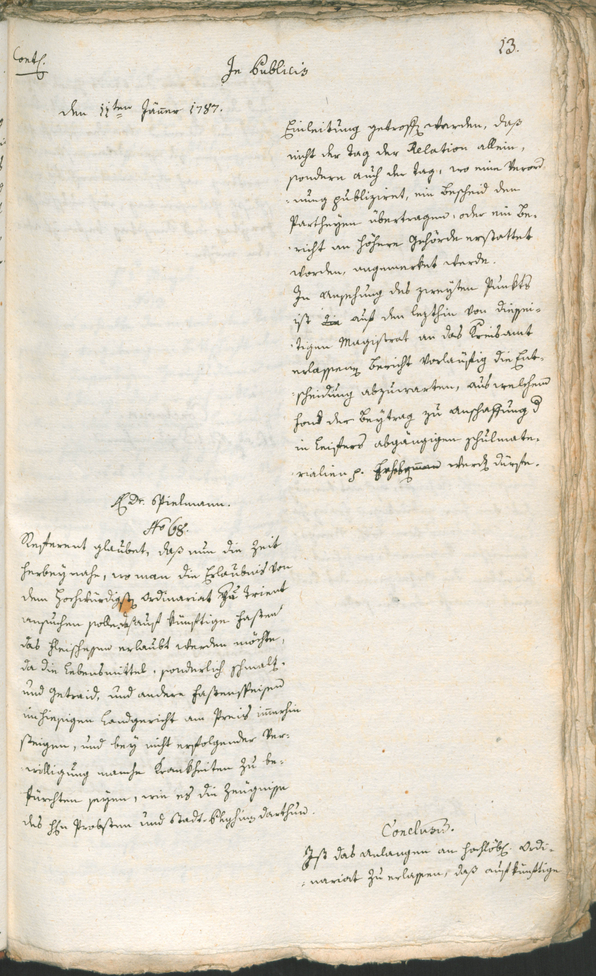 13.
Conts.
In Publicis
den 11ten Jäner 1787.
Einleitung getroffen werden, daß
nicht der Tag der Relation allein,
sondern auch der Tag, wo eine Verord
nung publiziret, ein Bescheid den
Partheyen übertragen, oder ein Be-
richt an höhere Gehörde erstattet
worden, angemerket werde.
In Ansehung des zweyten Punkts
ist die auf den lezthin von diessei-
tigen Magistrat an das Kreisamt
erlassenen Bericht vorläufig die Ent-
scheidung abzuwarten, aus welchem
Fond der Beytrag zu Anschaffung d
in Leifers abgängigen Schulmate-
rialien p. werden dürfte.
Dr. Spielmann.
No 68.
Referent glaubet, daß nun die Zeit
herbey nahe, wo man die Erlaubnis von
dem Hochwürdigsten Ordinariat zu Trient
ansuchen solle, daß auf künftige Fasten
das Fleischessen erlaubt werden möchte,
da die Lebensmittel, sonderlich Schmalz
und Getraid, und andere Fastenspeisen
im hiesigen Landgericht am Preis immerhin
steigen, und bey nicht erfolgender Ver-
willigung manche Krankheiten zu be-
fürchten seyen, wie es die Zeugnisse
des Hn Probsten und Stadt Physicus darthun.
Conclusum.
Ist das Anlangen an hochlöbl. Ordi-
nariat zu erlassen, daß auf künftige